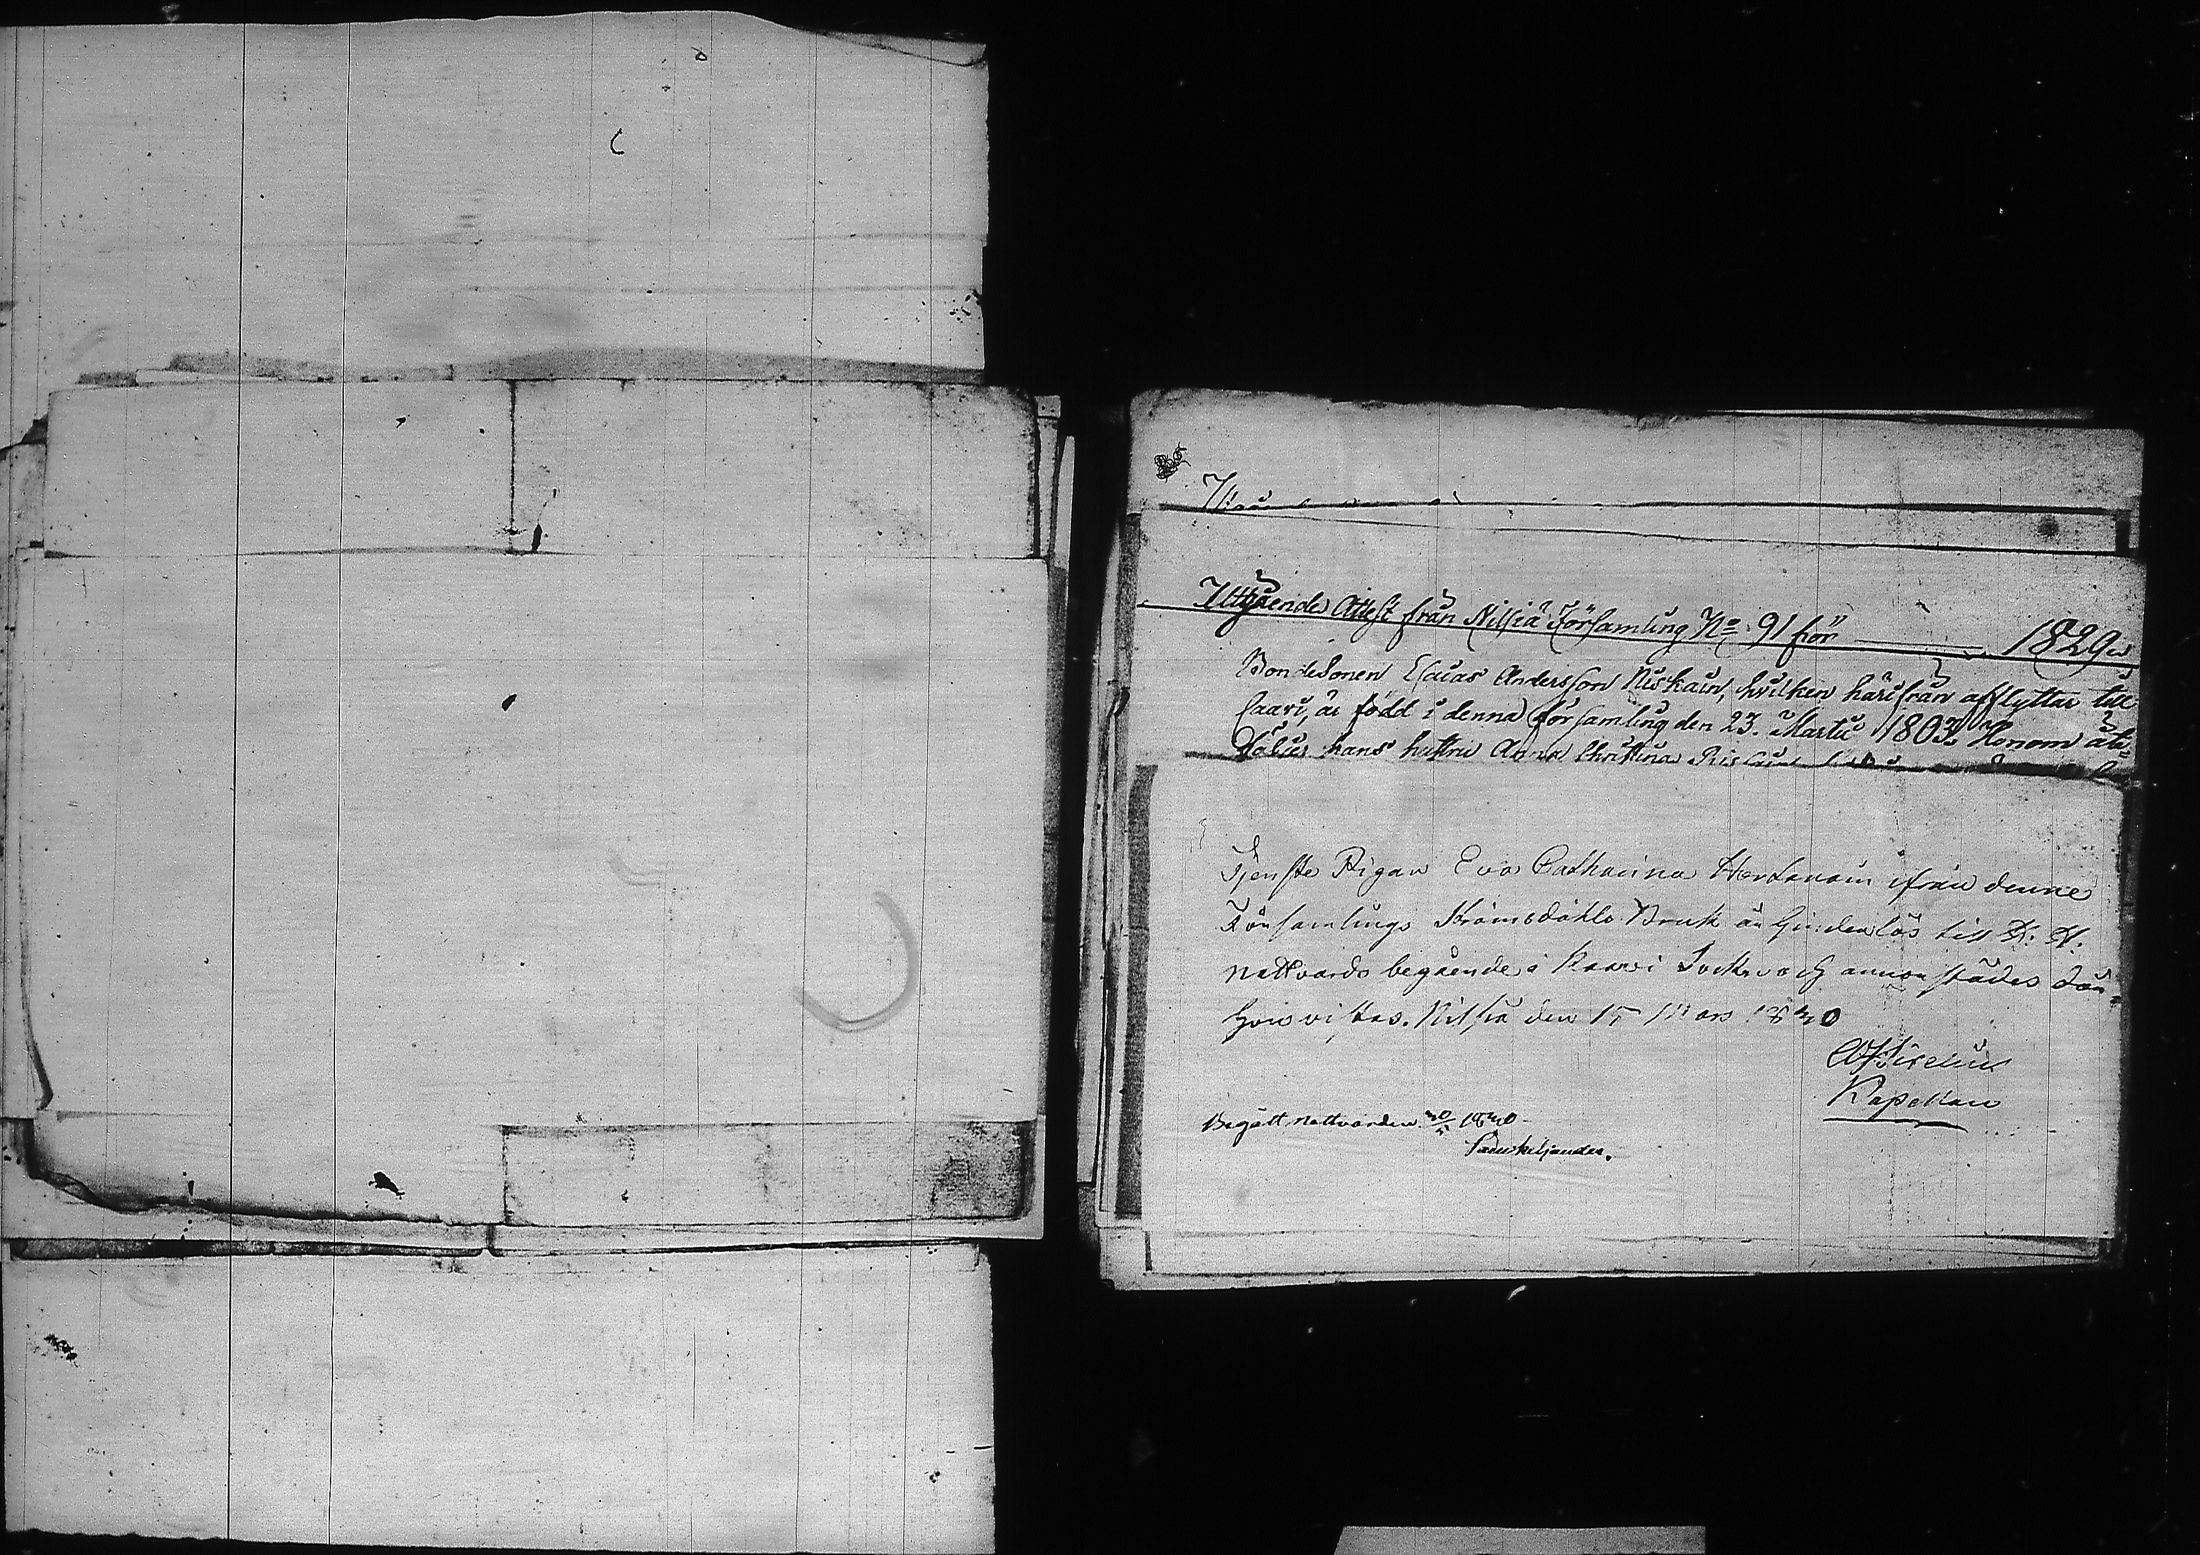 Uttgående Attest från Nilsiä Församling No 91 för 1829
Bondesonen Esaias Andersson Niskain, hvilken härifrån afflyttar till
Caavi, är född i denna Församling den 23. Martii 1803. Honom åt-
följer hans hustru Anna Christina
Tjenste Pigan Eva Catharina Hartikain ifrån denne
Församlings Strömsdahls Bruk är hinderlös till H. H.
Nattvards begående i Kaavi Sockn och annorstädes där
hon vistas. Nilsiä den 15 Mars 1830
Kapellan
Begått nattvarden 1830